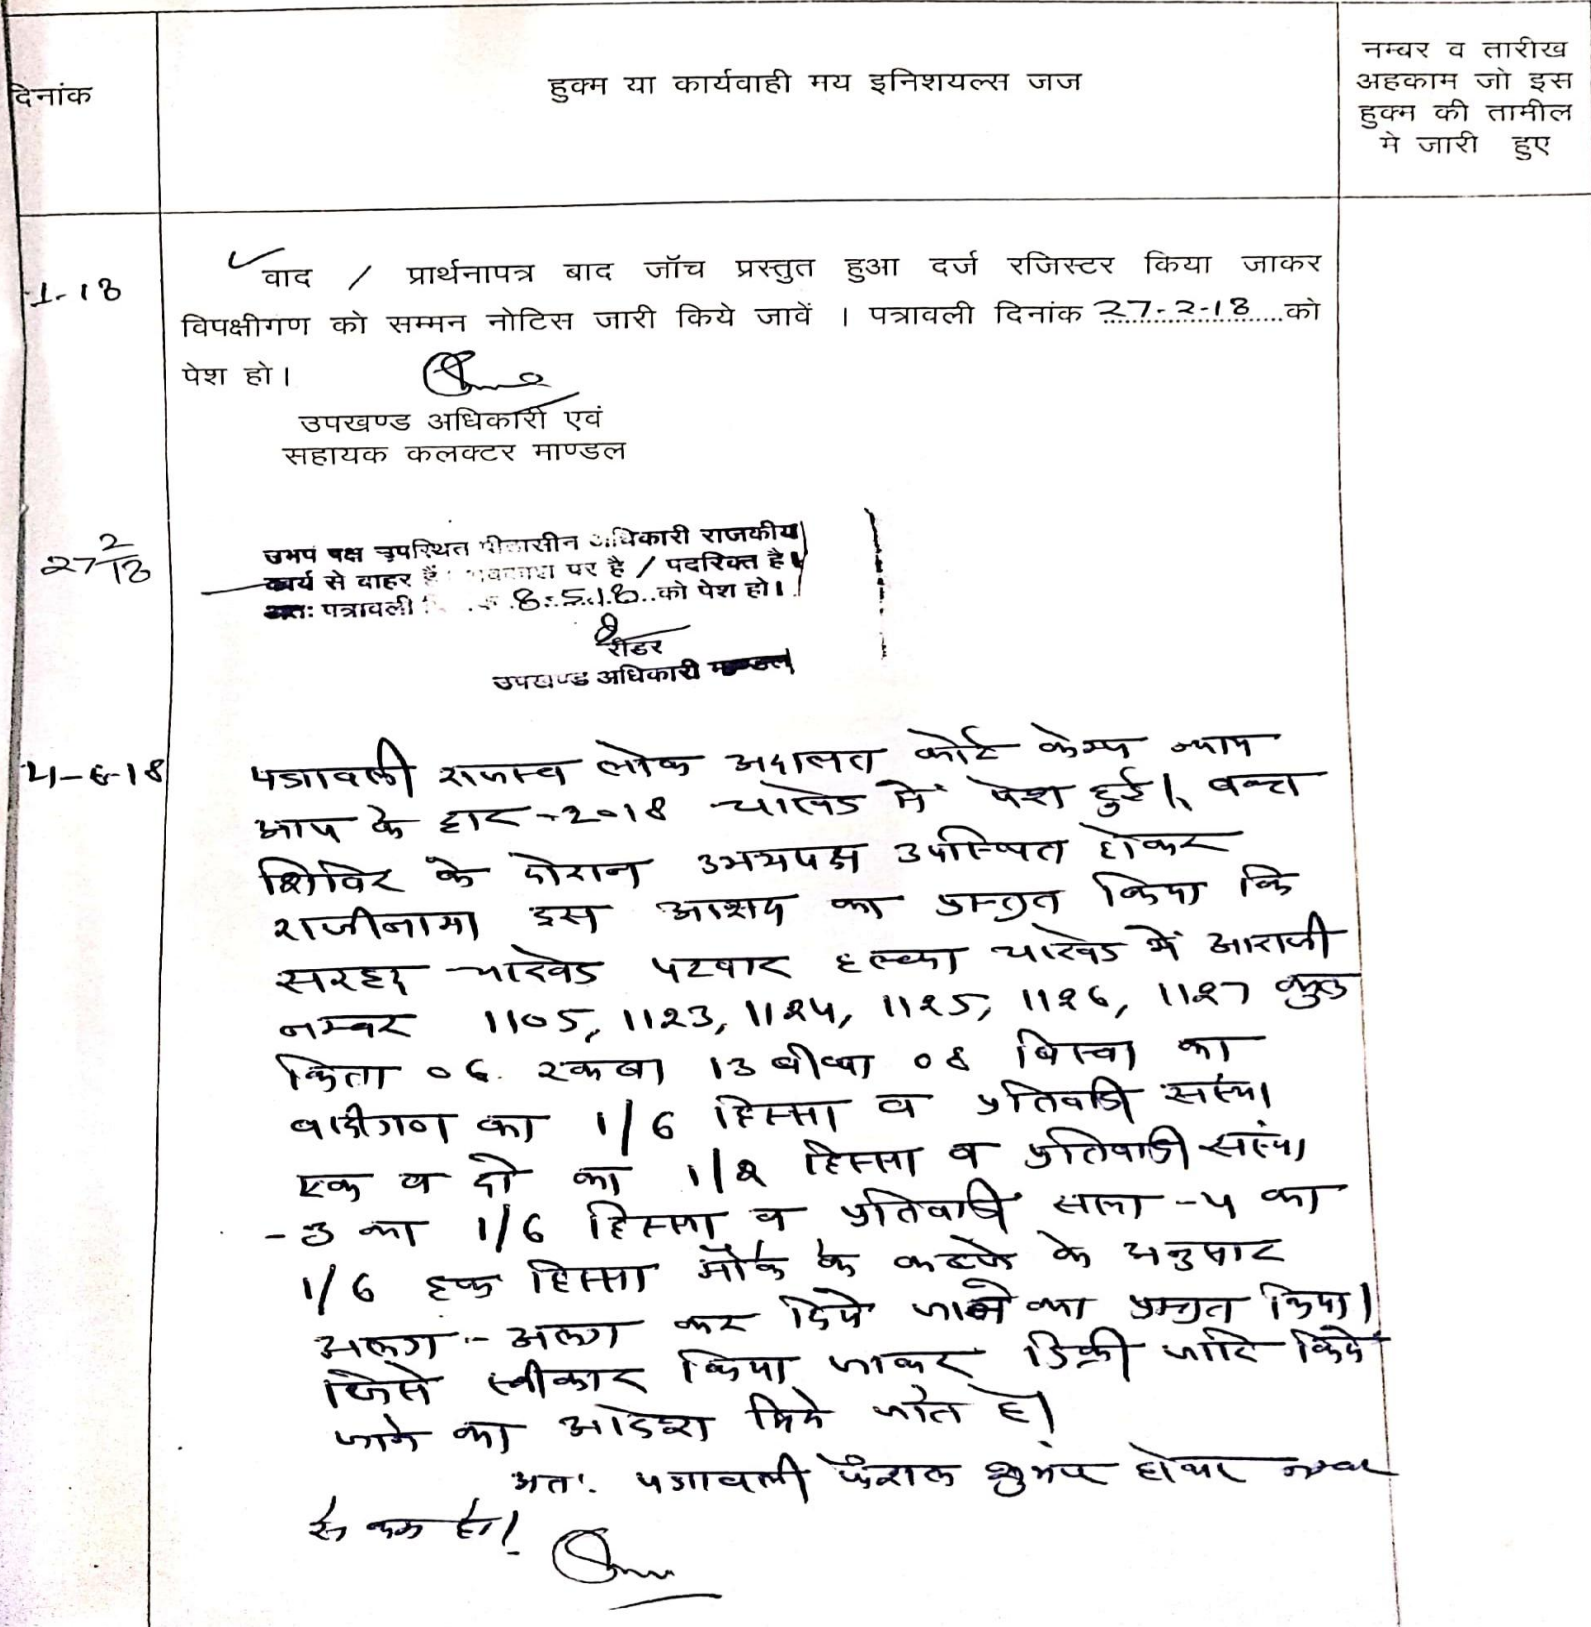 दिनांक
हुक्म या कार्यवाही मय इनिशयल्स जज
नम्बर व तारीख
अहकाम जो इस
हुक्म की तामील
मे जारी हुए
1-18
वाद / प्रार्थनापत्र बाद जॉच प्रस्तुत हुआ दर्ज रजिस्टर किया जाकर
विपक्षीगण को सम्मन नोटिस जारी किये जावें । पत्रावली दिनांक 27-2-18 को
पेश हो।
उपखण्ड अधिकारी एवं
सहायक कलक्टर माण्डल
27 2/18
उभय पक्ष उपस्थित पीठासीन अधिकारी राजकीय
कार्य से बाहर हैं अवकाश पर है / पदरिक्त है।
अतः पत्रावली 8.5.18 को पेश हो।
रीडर
उपखण्ड अधिकारी माण्डल
4-6-18
पत्रावली राजस्व लोक अदालत कोर्ट केम्प न्याय
आप के द्वार-2018 में पेश हुई।
शिविर के दौरान उभयपक्ष उपस्थित होकर
राजीनामा इस आशय का प्रस्तुत किया कि
सरहद पटवार हल्का में आराजी
नम्बर 1105, 1123, 1124, 1125, 1126, 1127 कुल
किता 06 रकबा 13 बीघा 08 बिस्वा का
वादीगण का 1/6 हिस्सा व प्रतिवादी संख्या
एक व दो का 1/2 हिस्सा व प्रतिवादी संख्या
-3 का 1/6 हिस्सा व प्रतिवादी संख्या -4 का
1/6 हक हिस्सा मौके के कब्जे के अनुसार
अलग-अलग कर दिये जाने का प्रस्तुत किया।
जिसे स्वीकार किया जाकर डिक्री जारि किये
जाने का आदेश दिये जाते है।
अतः पत्रावली फैसल शुमार होकर नम्बर
से कम हो।